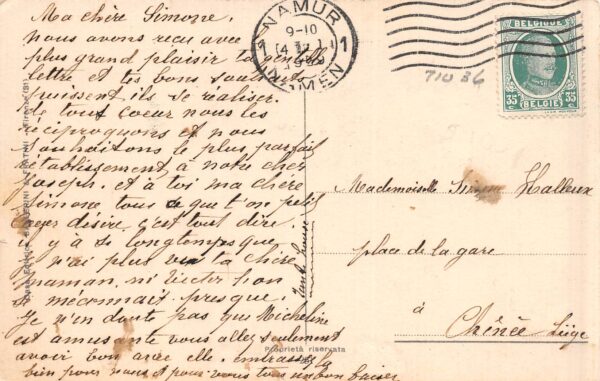 Ma chère Simone.
nous avons reçu avec
plus grand plaisir ta
lettre et tes bons souhaits
puissent ils se réaliser.
de tout coeur nous les
réciproquons et nous
souhaitons le plus parfait
rétablissement à notre cher
Joseph. et à toi ma chère
Simone tous ce que t'on petit
coeur désire c'est tout dire.
il y a si longtemps que
n'ai plus vu ta chère
maman, ni Victor l'on
se méconnait presque.
Je n'en doute pas que Micheline
est amusante vous allez seulement
avoir bon avec elle. embrasse la
bien pour nous et pour vous tous un bon baiser
Louise
NAMUR
1 9-10 1
NAMEN
BELGIQUE
35 c 35 c
BELGIË
71036
Mademoiselle Simone Halleux
place de la gare
à
Chênée Liège
Proprietà riservata